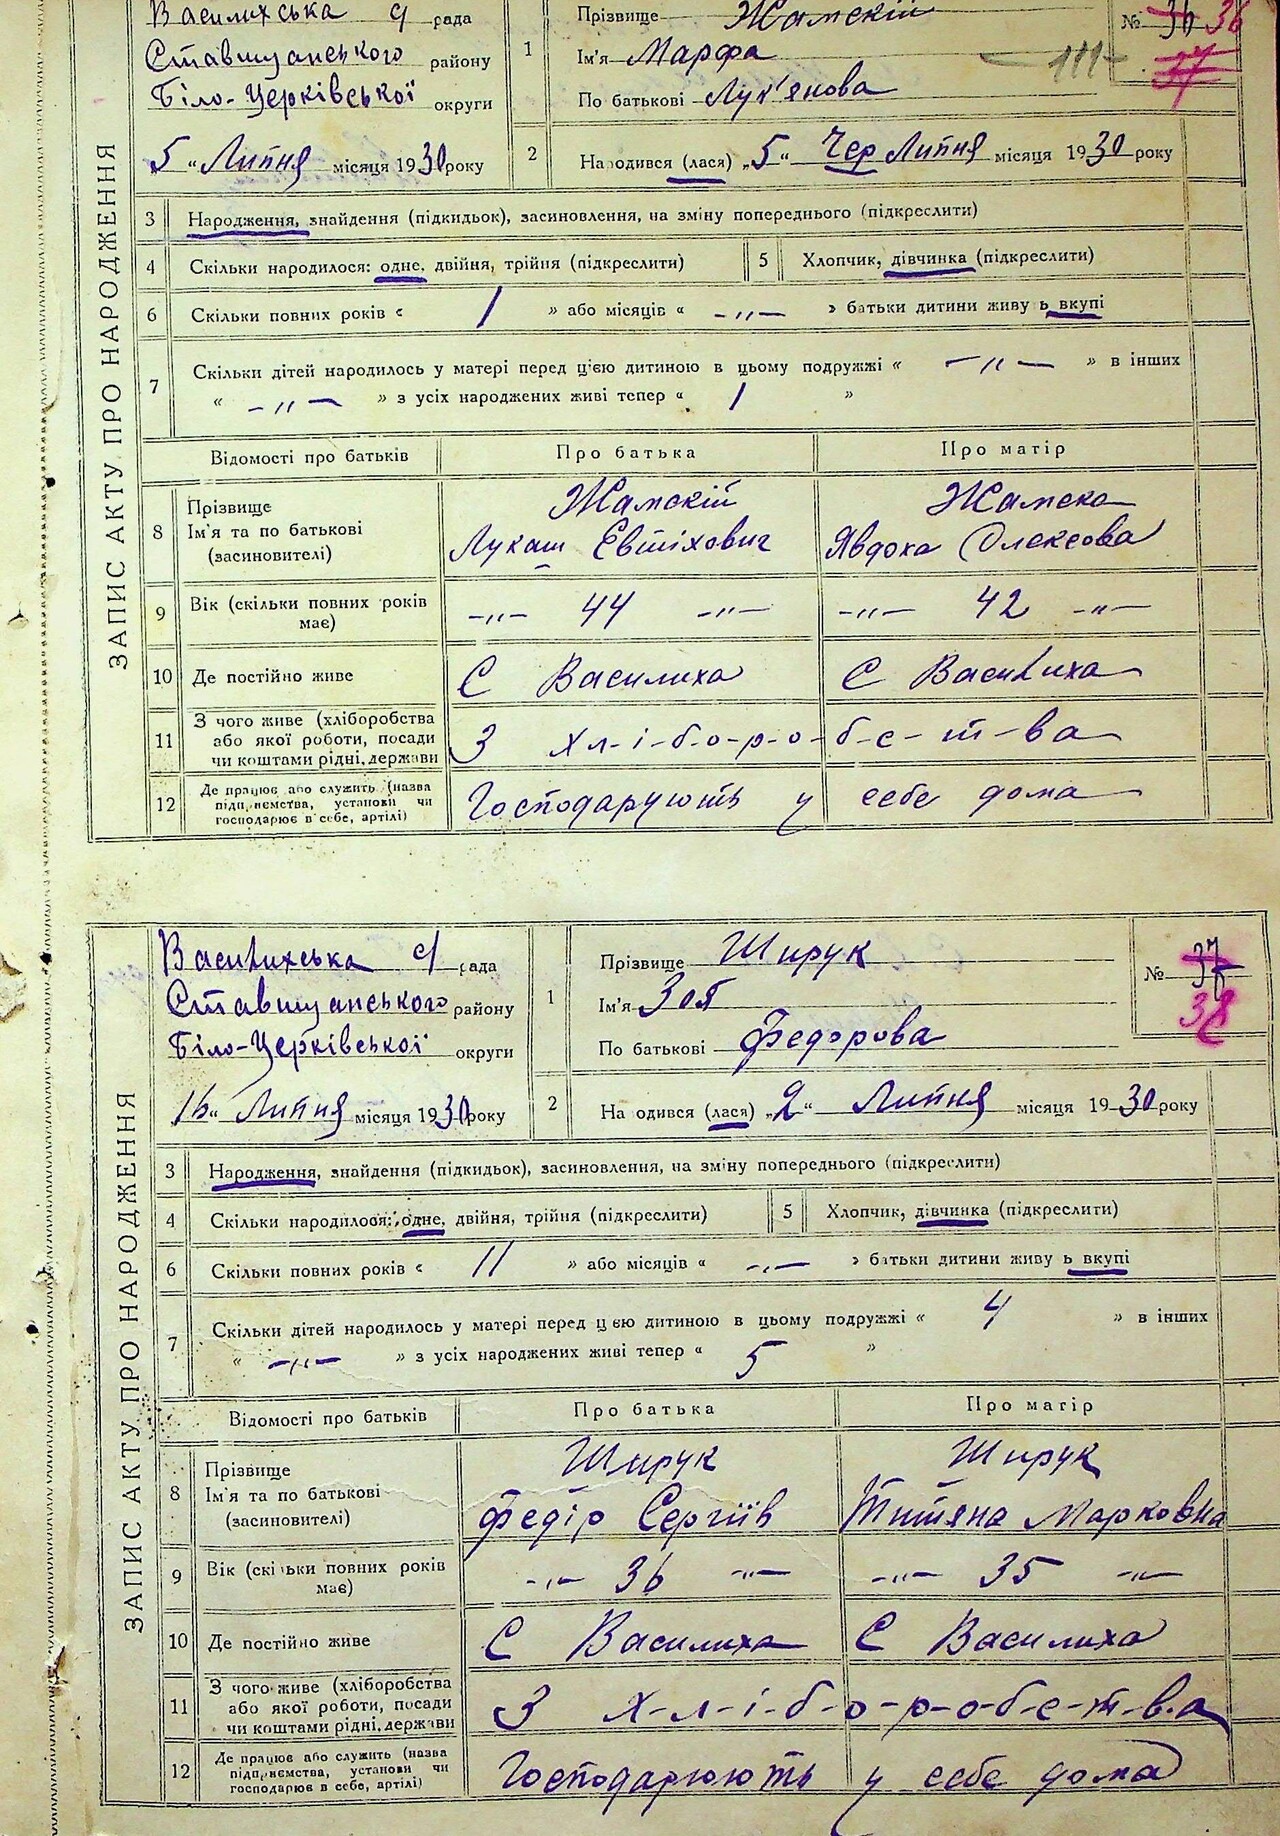 ЗАПИС АКТУ ПРО НАРОДЖЕННЯ
Василихська с/ рада
Ставищанського району
Біло-Церківської округи
5 "Липня місяця 1930 року
1 Прізвище Жамскій
Ім'я Марфа
По батькові Лук'янова
№ 36 36
37
2 Народився (лася) „5" Чер Липня місяця 1930 року
3 Народження, знайдення (підкидьок), засиновлення, на зміну попереднього (підкреслити)
4 Скільки народилося: одне, двійня, трійня (підкреслити) 5 Хлопчик, дівчинка (підкреслити)
6 Скільки повних років « 1 » або місяців « -"- » батьки дитини живуть вкупі
7 Скільки дітей народилось у матері перед цією дитиною в цьому подружжі « -"- » в інших
« -"- » з усіх народжених живі тепер « 1 »
Відомості про батьків Про батька Про матір
8 Прізвище Жамскій Жамска
Ім'я та по батькові Лукаш Євтіхович Явдоха Олексова
(засиновителі)
9 Вік (скільки повних років -"- 44 -"- -"- 42 -"-
має)
10 Де постійно живе С Василиха С Василиха
11 З чого живе (хліборобства
або якої роботи, посади З хл-і-б-о-р-о-б-с-т-ва
чи коштами рідні, держави
12 Де працює або служить (назва
підприємства, установи чи Господарують у себе дома
господарює в себе, артілі)
ЗАПИС АКТУ ПРО НАРОДЖЕННЯ
Василихська с/ рада
Ставищанського району
Біло-Церківської округи
16" Липня місяця 1930 року
1 Прізвище Ширук
Ім'я Зоя
По батькові Федорова
№ 37
38
2 На одився (лася) „2" Липня місяця 1930 року
3 Народження, знайдення (підкидьок), засиновлення, на зміну попереднього (підкреслити)
4 Скільки народилося: одне, двійня, трійня (підкреслити) 5 Хлопчик, дівчинка (підкреслити)
6 Скільки повних років « 11 » або місяців « -"- » батьки дитини живуть вкупі
7 Скільки дітей народилось у матері перед цією дитиною в цьому подружжі « 4 » в інших
« -"- » з усіх народжених живі тепер « 5 »
Відомості про батьків Про батька Про матір
8 Прізвище Ширук Ширук
Ім'я та по батькові Федір Сергіїв Титяна Марковна
(засиновителі)
9 Вік (скільки повних років -"- 36 -"- -"- 35 -"-
має)
10 Де постійно живе С Василиха С Василиха
11 З чого живе (хліборобства
або якої роботи, посади З х-л-і-б-о-р-о-б-с-т-в-а
чи коштами рідні, держави
12 Де працює або служить (назва
підприємства, установи чи Господарюють у себе дома
господарює в себе, артілі)